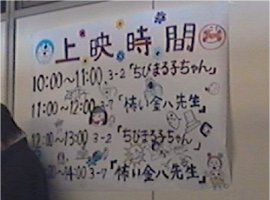 上映時間
10:00~11:00 3-2「ちびまる子ちゃん」
11:00~12:00 3-7「怖い金八先生」
12:00~13:00 3-2「ちびまる子ちゃん」
~14:00 3-7「怖い金八先生」